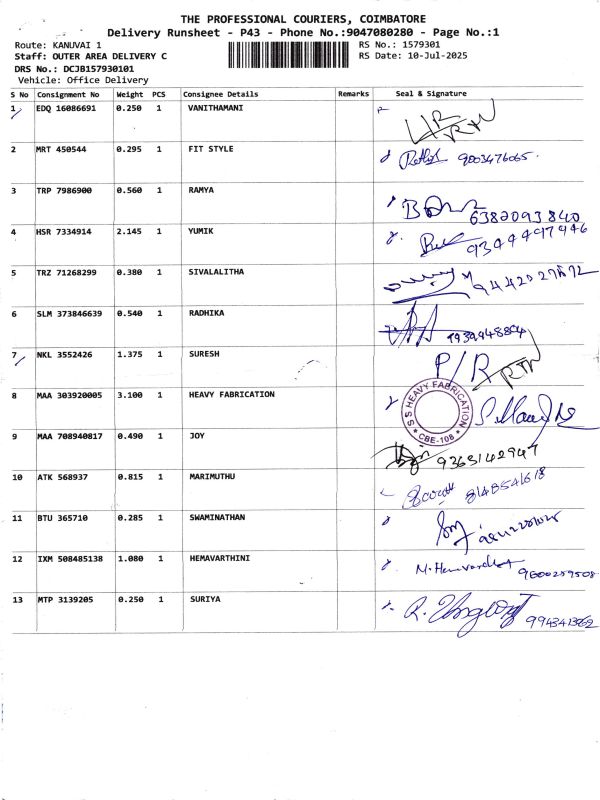 THE PROFESSIONAL COURIERS, COIMBATORE
Delivery Runsheet - P43 - Phone No.:9047080280 - Page No.:1
Route: KANUVAI 1 RS No.: 1579301
Staff: OUTER AREA DELIVERY C RS Date: 10-Jul-2025
DRS No.: DCJB157930101
Vehicle: Office Delivery
S No Consignment No Weight PCS Consignee Details Remarks Seal & Signature
1 EDQ 16086691 0.250 1 VANITHAMANI
2 MRT 450544 0.295 1 FIT STYLE 9003476065.
3 TRP 7986900 0.560 1 RAMYA 6382093840
4 HSR 7334914 2.145 1 YUMIK 9344497946
5 TRZ 71268299 0.380 1 SIVALALITHA
6 SLM 373846639 0.540 1 RADHIKA
7 NKL 3552426 1.375 1 SURESH P/R
8 MAA 303920005 3.100 1 HEAVY FABRICATION S S HEAVY FABRICATION * CBE-108 *
9 MAA 708940817 0.490 1 JOY 9363142947
10 ATK 568937 0.815 1 MARIMUTHU 8148541618
11 BTU 365710 0.285 1 SWAMINATHAN
12 IXM 508485138 1.080 1 HEMAVARTHINI 9600259508
13 MTP 3139205 0.250 1 SURIYA